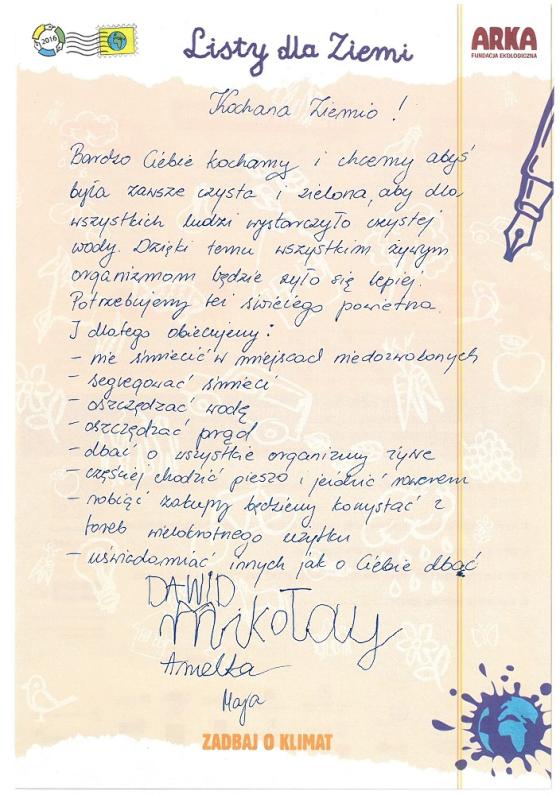 2016
Listy dla Ziemi
ARKA
FUNDACJA EKOLOGICZNA
Kochana Ziemio !
Bardzo Ciebie kochamy i chcemy abyś
była zawsze czysta i zielona, aby dla
wszystkich ludzi wystarczyło czystej
wody. Dzięki temu wszystkim żywym
organizmom będzie żyło się lepiej.
Potrzebujemy też świeżego powietrza.
I dlatego obiecujemy:
- nie śmiecić w miejscach niedozwolonych
- segregować śmieci
- oszczędzać wodę
- oszczędzać prąd
- dbać o wszystkie organizmy żywe
- częściej chodzić pieszo i jeździć rowerem
- robiąc zakupy będziemy korzystać z
toreb wielokrotnego użytku
- uświadamiać innych jak o Ciebie dbać
DAWID
Mikołaj
Amelka
Maja
ZADBAJ O KLIMAT